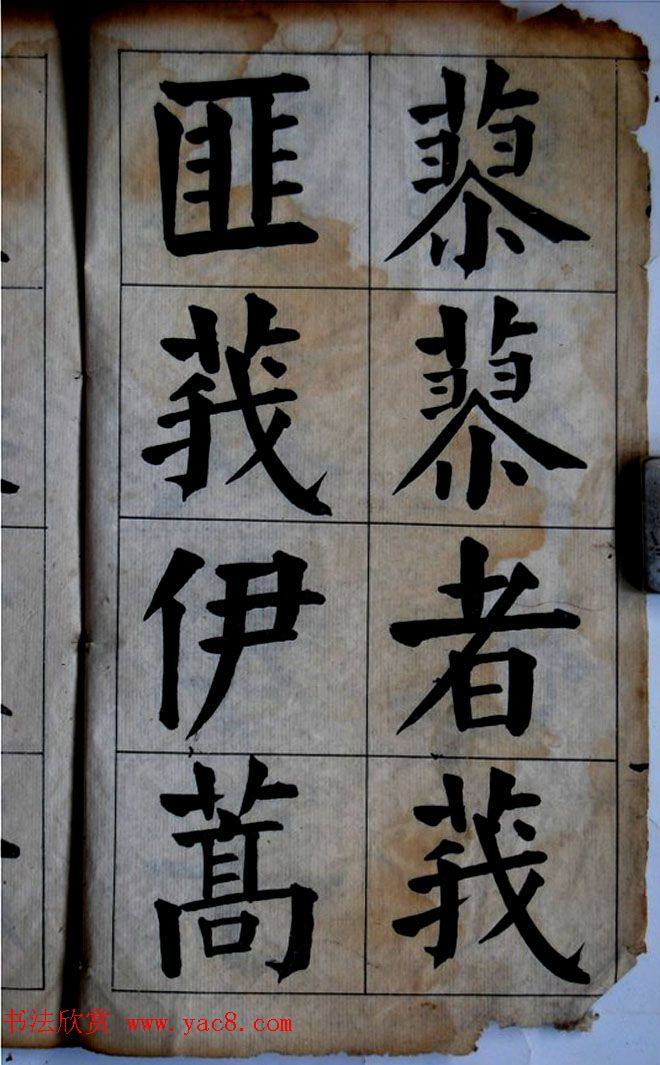 蓼蓼者莪
匪莪伊蒿
书法欣赏 www.yac8.com